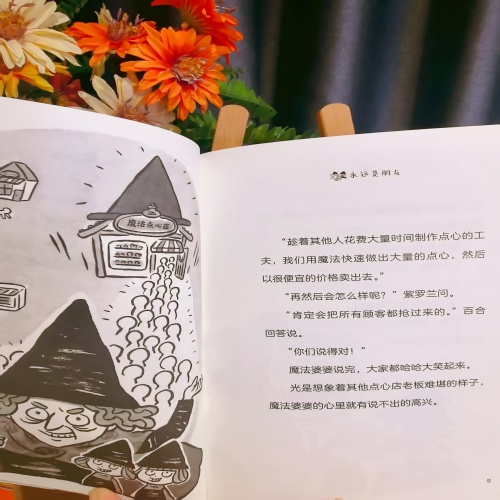 魔法点心屋
永远是朋友
“趁着其他人花费大量时间制作点心的工
夫，我们用魔法快速做出大量的点心，然后
以很便宜的价格卖出去。”
“再然后会怎么样呢？”紫罗兰问。
“肯定会把所有顾客都抢过来的。”百合
回答说。
“你们说得对！”
魔法婆婆说完，大家都哈哈大笑起来。
光是想象着其他点心店老板难堪的样子，
魔法婆婆的心里就有说不出的高兴。